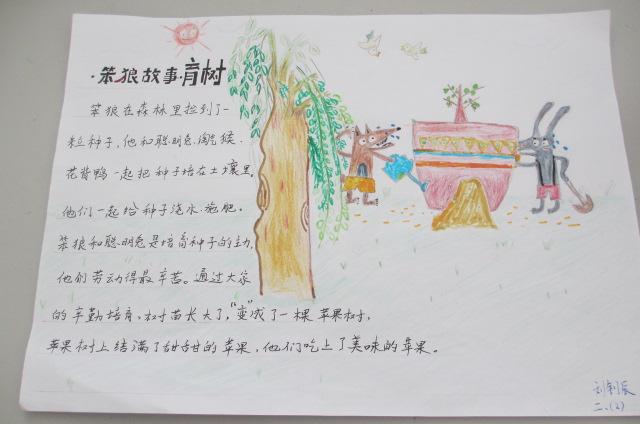 ·笨狼故事·育树
笨狼在森林里捡到了一
粒种子,他和聪明兔、淘气猴、
花背鸭一起把种子培在土壤里。
他们一起给种子浇水、施肥。
笨狼和聪明兔是培育种子的主力,
他们劳动得最辛苦。通过大家
的辛勤培育,树苗长大了,“变”成了一棵苹果树,
苹果树上结满了甜甜的苹果,他们吃上了美味的苹果。
二、(2)